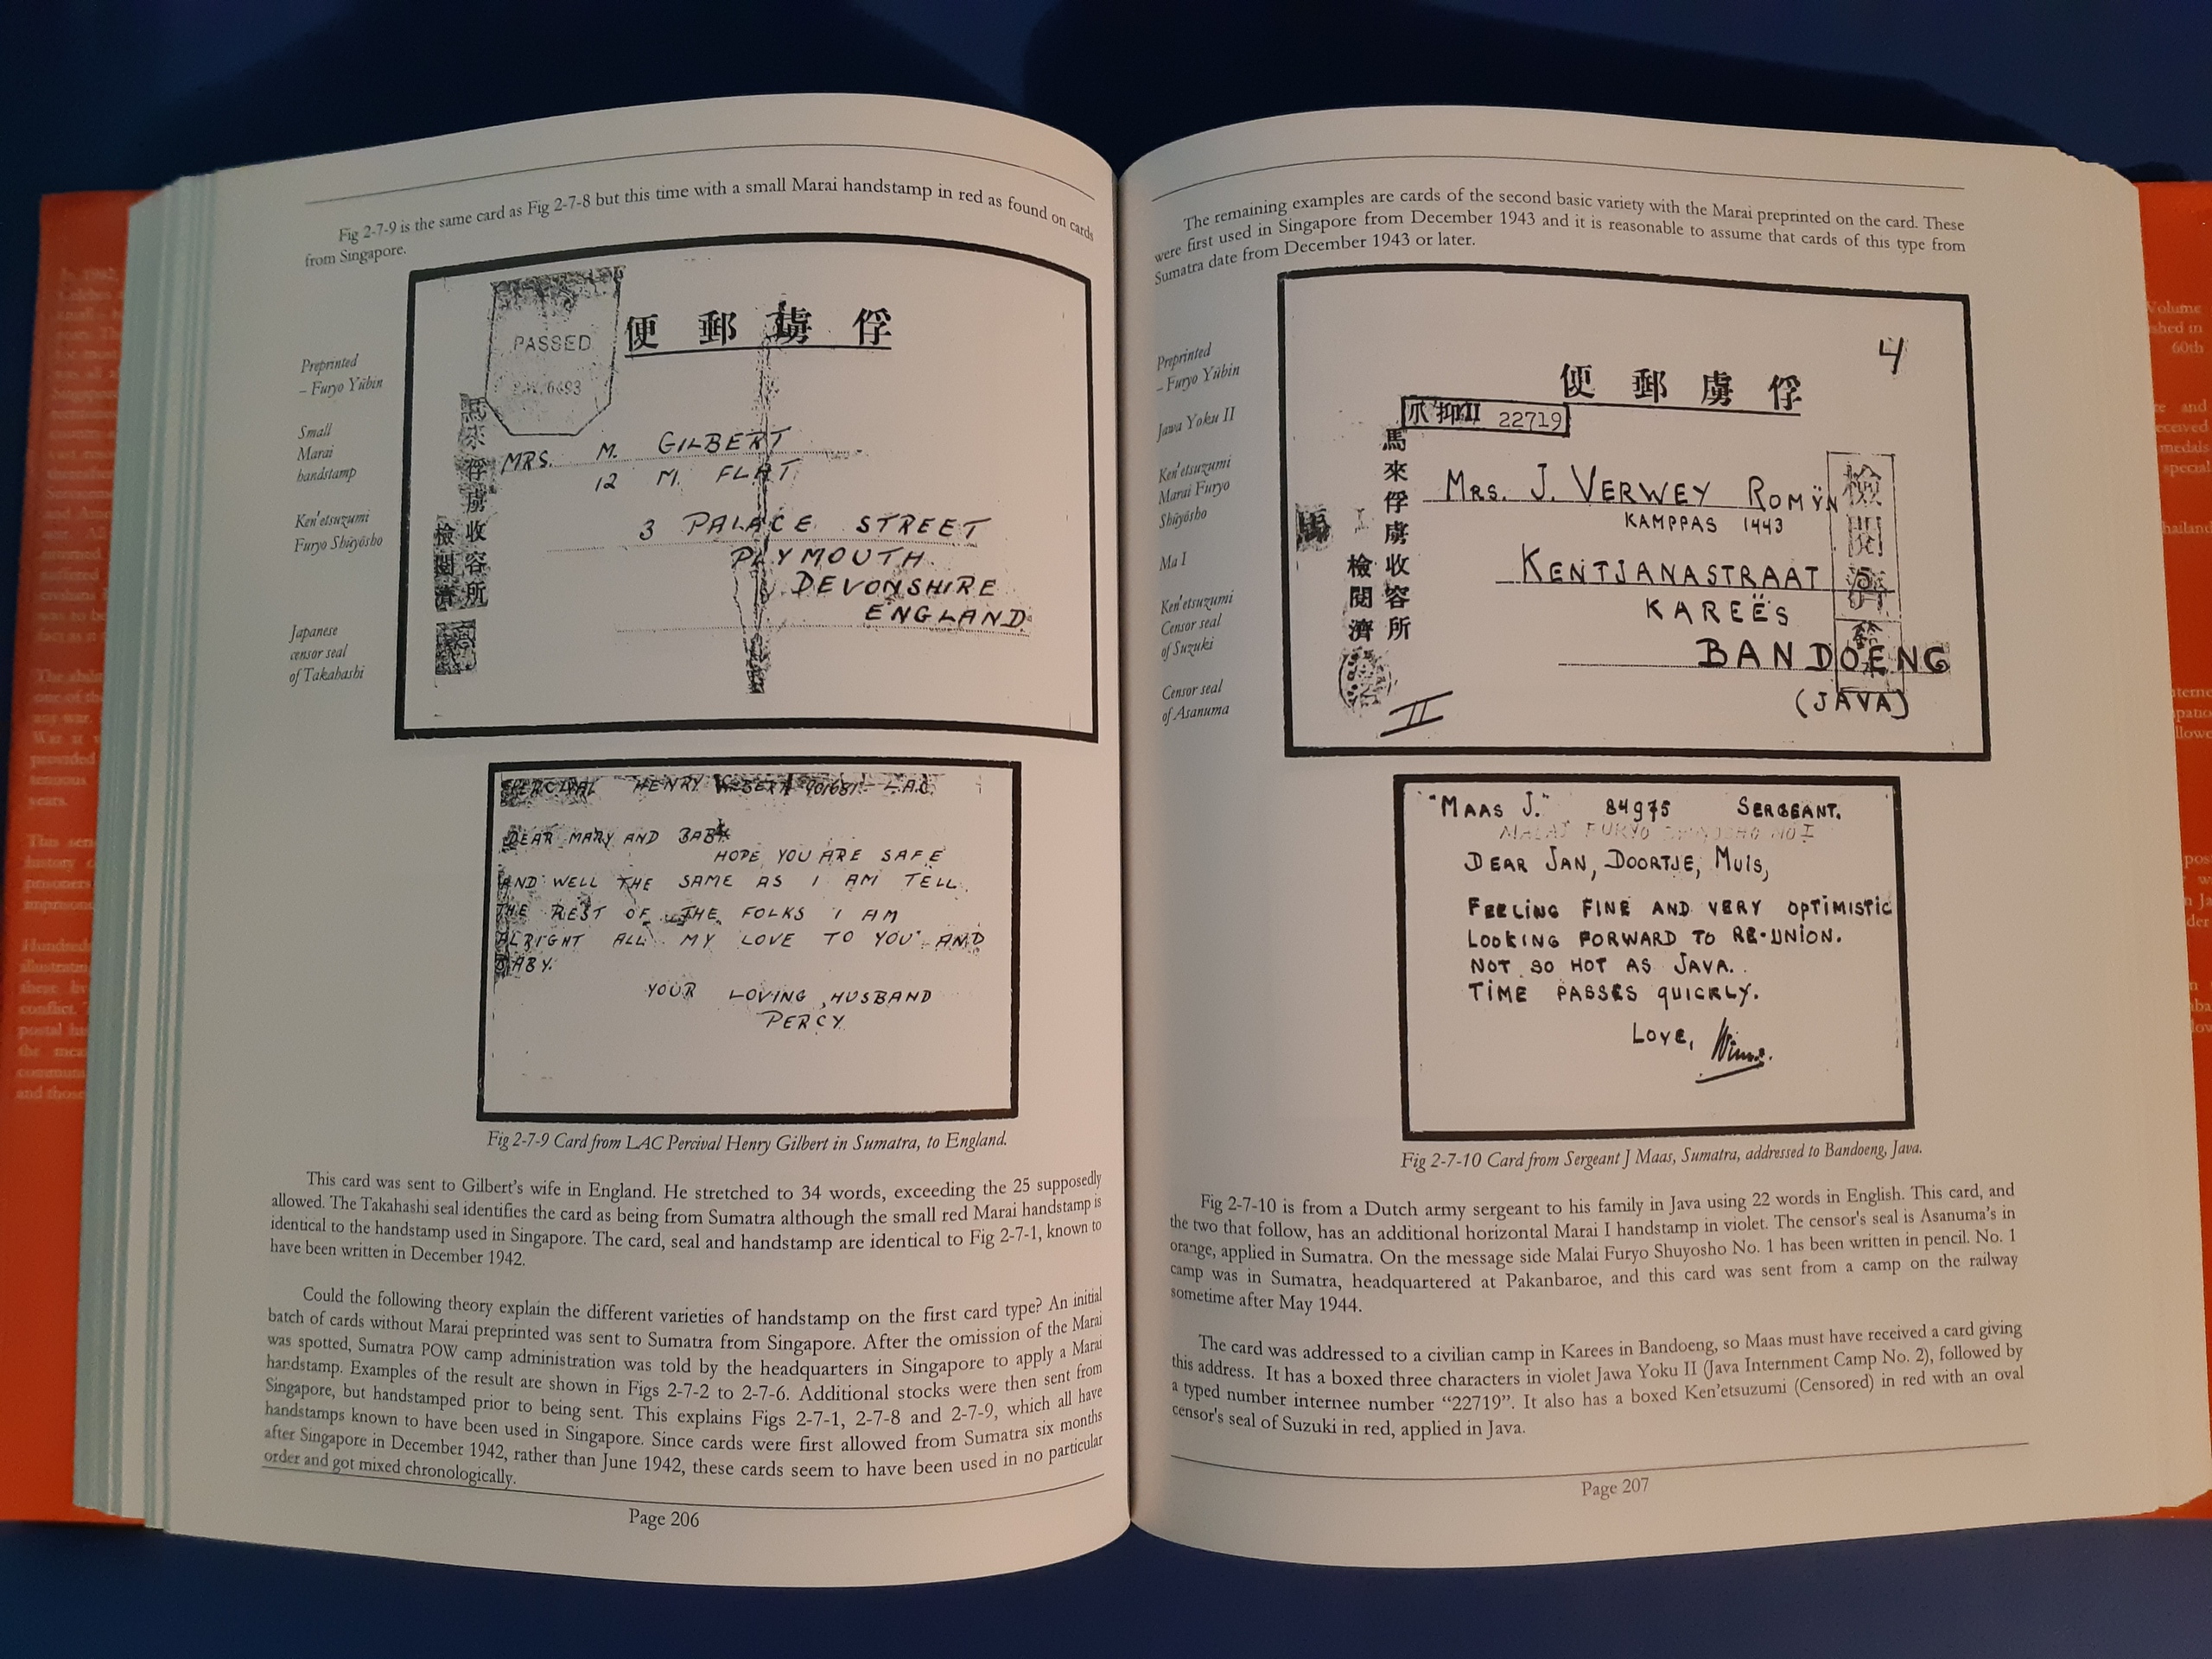 Fig 2-7-9 is the same card as Fig 2-7-8 but this time with a small Marai handstamp in red as found on cards
from Singapore.
Preprinted
– Furyo Yūbin
Small
Marai
handstamp
Ken'etsuzumi
Furyo Shūyōsho
Japanese
censor seal
of Takahashi
PASSED
便 郵 虜 俘
俘虜收容所
檢閲濟
MRS. M. GILBERT
12 M. FLAT
3 PALACE STREET
PLYMOUTH
DEVONSHIRE
ENGLAND.
PERCIVAL HENRY 901681 L.A.C.
DEAR MARY AND BABY
HOPE YOU ARE SAFE
AND WELL THE SAME AS I AM TELL
THE REST OF THE FOLKS I AM
ALRIGHT ALL MY LOVE TO YOU AND
BABY.
YOUR LOVING HUSBAND
PERCY
Fig 2-7-9 Card from LAC Percival Henry Gilbert in Sumatra, to England.
This card was sent to Gilbert's wife in England. He stretched to 34 words, exceeding the 25 supposedly
allowed. The Takahashi seal identifies the card as being from Sumatra although the small red Marai handstamp is
identical to the handstamp used in Singapore. The card, seal and handstamp are identical to Fig 2-7-1, known to
have been written in December 1942.
Could the following theory explain the different varieties of handstamp on the first card type? An initial
batch of cards without Marai preprinted was sent to Sumatra from Singapore. After the omission of the Marai
was spotted, Sumatra POW camp administration was told by the headquarters in Singapore to apply a Marai
handstamp. Examples of the result are shown in Figs 2-7-2 to 2-7-6. Additional stocks were then sent from
Singapore, but handstamped prior to being sent. This explains Figs 2-7-1, 2-7-8 and 2-7-9, which all have
handstamps known to have been used in Singapore. Since cards were first allowed from Sumatra six months
after Singapore in December 1942, rather than June 1942, these cards seem to have been used in no particular
order and got mixed chronologically.
Page 206
The remaining examples are cards of the second basic variety with the Marai preprinted on the card. These
were first used in Singapore from December 1943 and it is reasonable to assume that cards of this type from
Sumatra date from December 1943 or later.
Preprinted
– Furyo Yūbin
Jawa Yoku II
Ken'etsuzumi
Marai Furyo
Shūyōsho
Ma I
Ken'etsuzumi
Censor seal
of Suzuki
Censor seal
of Asanuma
4
便 郵 虜 俘
爪抑II 22719
馬來俘虜收容所
檢閲濟
檢閲濟
MRS. J. VERWEY ROMŸN
KAMPPAS 1443
KENTJANASTRAAT
KAREËS
BANDOENG
(JAVA)
II
"MAAS J." 84975 SERGEANT.
MALAI FURYO SHUYOSHO NO I
DEAR JAN, DOORTJE, MUIS,
FEELING FINE AND VERY OPTIMISTIC
LOOKING FORWARD TO RE-UNION.
NOT SO HOT AS JAVA.
TIME PASSES QUICKLY.
LOVE,
Fig 2-7-10 Card from Sergeant J Maas, Sumatra, addressed to Bandoeng, Java.
Fig 2-7-10 is from a Dutch army sergeant to his family in Java using 22 words in English. This card, and
the two that follow, has an additional horizontal Marai I handstamp in violet. The censor's seal is Asanuma's in
orange, applied in Sumatra. On the message side Malai Furyo Shuyosho No. 1 has been written in pencil. No. 1
camp was in Sumatra, headquartered at Pakanbaroe, and this card was sent from a camp on the railway
sometime after May 1944.
The card was addressed to a civilian camp in Karees in Bandoeng, so Maas must have received a card giving
this address. It has a boxed three characters in violet Jawa Yoku II (Java Internment Camp No. 2), followed by
a typed number internee number “22719”. It also has a boxed Ken'etsuzumi (Censored) in red with an oval
censor's seal of Suzuki in red, applied in Java.
Page 207